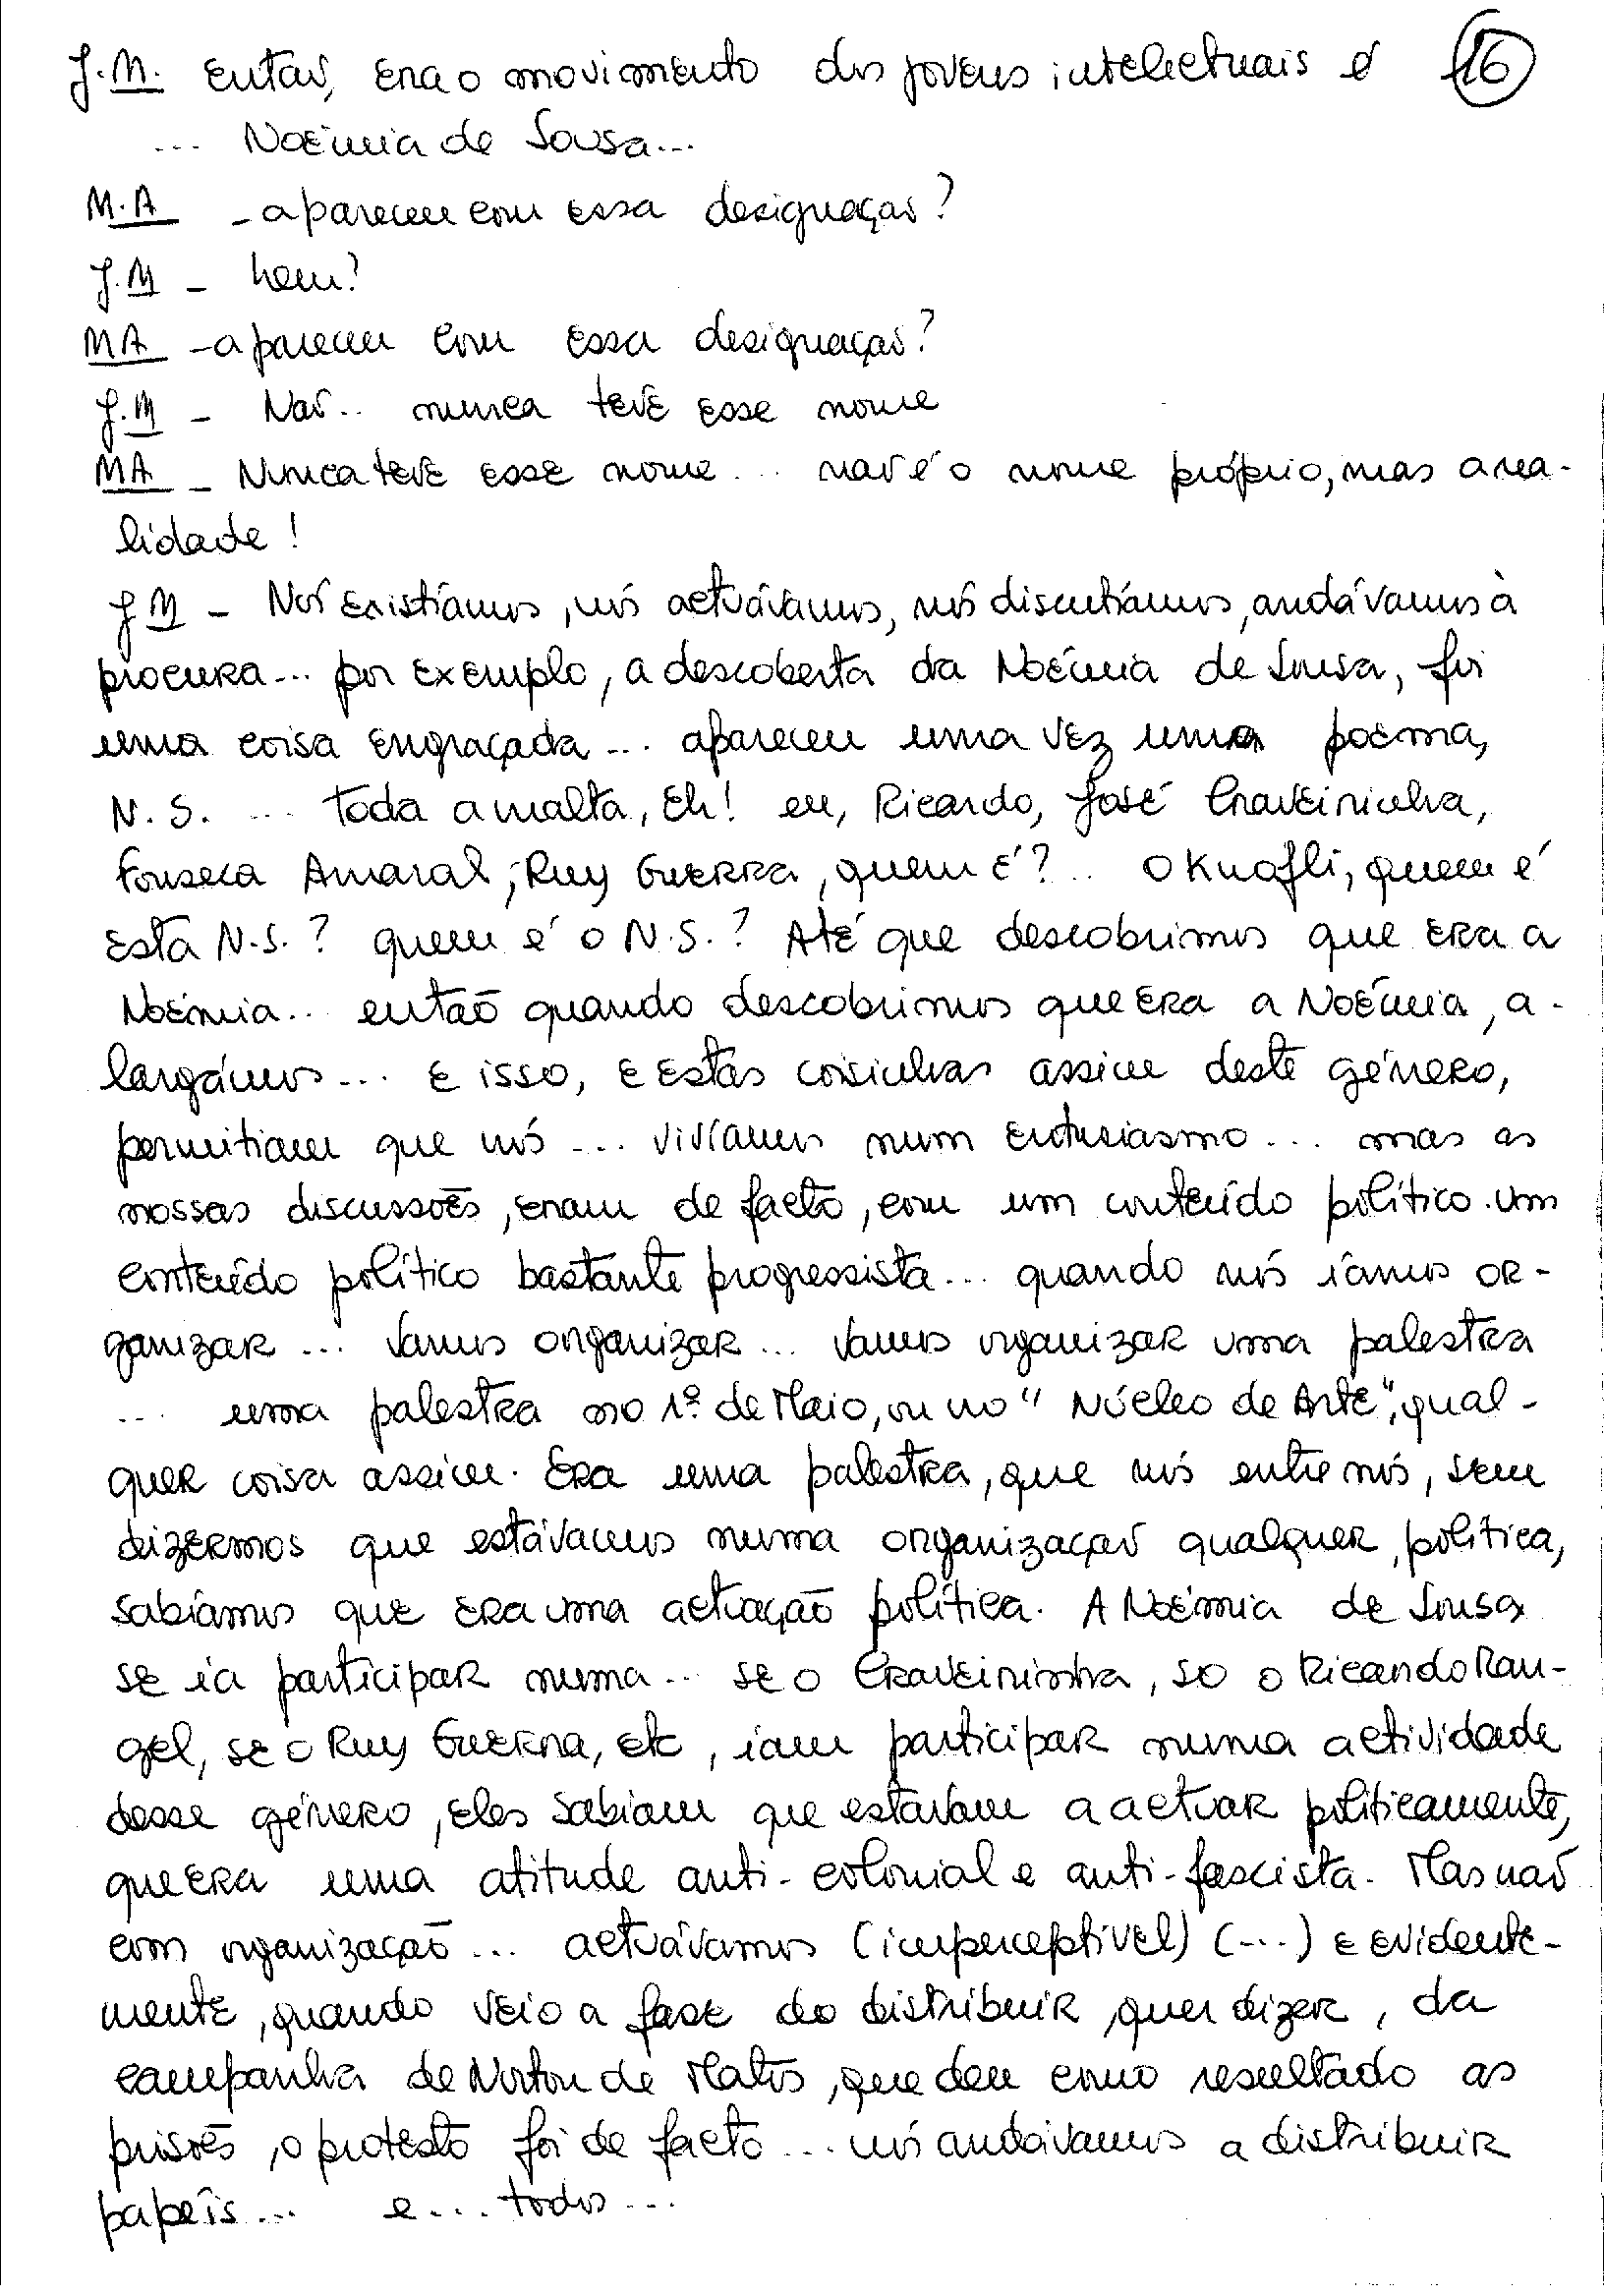 J.M. Então, era o movimento dos jovens intelectuais é 16
... Noémia de Sousa...
M.A - apareceu com essa designação?
J.M - hem?
MA - apareceu com essa designação?
J.M - Não.. nunca teve esse nome
MA - Nunca teve esse nome... não é o nome próprio, mas a rea-
lidade!
J M - Nós existíamos, nós actuávamos, nós discutíamos, andávamos à
procura... por exemplo, a descoberta da Noémia de Sousa, foi
uma coisa engraçada... apareceu uma vez uma poema,
N. S. ... toda a malta, Eh! eu, Ricardo, José Craveirinha,
Fonseca Amaral, Ruy Guerra, quem é? .. O Knofli, quem é
esta N.S.? quem é o N.S.? Até que descobrimos que era a
Noémia... então quando descobrimos que era a Noémia, a-
largámos... e isso, e estas coisinhas assim deste género,
permitiam que nós ... vivíamos num entusiasmo... mas as
nossas discussões, eram de facto, com um conteúdo político. Um
conteúdo político bastante progressista... quando nós íamos or-
ganizar ... vamos organizar... vamos organizar uma palestra
... uma palestra no 1º de Maio, ou no "Núcleo de Arte", qual-
quer coisa assim. Era uma palestra, que nós entre nós, sem
dizermos que estávamos numa organização qualquer, política,
sabíamos que era uma actuação política. A Noémia de Sousa
se ia participar numa... se o Craveirinha, se o Ricardo Ran-
gel, se o Ruy Guerra, etc, iam participar numa actividade
desse género, eles sabiam que estavam a actuar politicamente,
que era uma atitude anti-colonial e anti-fascista. Mas não
com organização... actuávamos (imperceptível) (...) e evidente-
mente, quando veio a fase do distribuir, quer dizer, da
campanha de Norton de Matos, que deu como resultado as
prisões, o protesto foi de facto... nós andávamos a distribuir
papeis... e... todos...